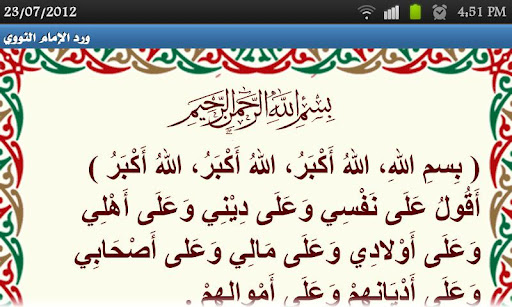 23/07/2012 4:51 PM
ورد الإمام النووي
بِسْمِ اللهِ الرَّحْمنِ الرَّحِيمِ
( بِسمِ اللهِ، اللهُ أَكْبَرُ، اللهُ أَكْبَرُ، اللهُ أَكْبَرُ )
أَقُولُ عَلَى نَفْسِي وَعَلَى دِيْنِي وَعَلَى أَهْلِي
وَعَلَى أَوْلادِي وَعَلَى مَالِي وَعَلَى أَصْحَابِي
وَعَلَى أَدْيَانِهِمْ وَعَلَى أَمْوالِهِمْ .